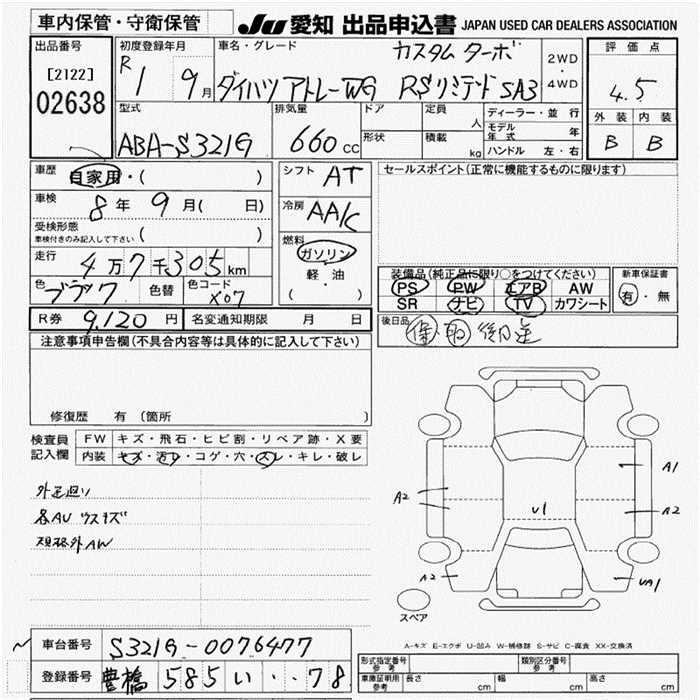 車内保管・守衛保管
JU 愛知 出品申込書 JAPAN USED CAR DEALERS ASSOCIATION
出品番号
[2122]
02638
初度登録年月
R1 9月
車名・グレード
カスタム ターボ
ダイハツ アトレーWG RSリミテッド SA3
2WD
・
4WD
評価点
4.5
外装 内装
B B
型式
ABA-S321G
排気量
660cc
ドア
形状
定員 人
積載 kg
ディーラー・並行
モデル年式 年
ハンドル 左・右
車歴
自家用・( )
車検
8年 9月( 日)
受検形態
車検付きのみ記入して下さい ( )
走行
4万7千305km
色 ブラック 色替 色コード X07
シフト AT
冷房 AA/C
燃料
ガソリン
軽・油
( )
セールスポイント(正常に機能するものに限ります)
装備品(純正品に限り○をつけてください)
PS PW エアB AW
SR ナビ TV カワシート
新車保証書
有・無
R券 9,120円 名変通知期限 月 日
後日品
保・取 後日送
注意事項申告欄(不具合内容等は具体的に記入して下さい)
修復歴 有(箇所 )
検査員記入欄
FW キズ・飛石・ヒビ割・リペア跡・X要
内装 キズ・汚レ・コゲ・穴・スレ・キレ・破レ
外足廻り
各AU ウスキズ
規格外AW
A1
A2
A2
U1
A2
UA1
スペア
A-キズ E-エクボ U-凹み W-補修跡 S-サビ C-腐食 XX-交換済
車台番号 S321G-0076477
登録番号 豊橋 585 い ・・78
形式指定番号 参考
類別区分番号 参考
車庫証明用 参考 長さ cm 幅 cm 高さ cm